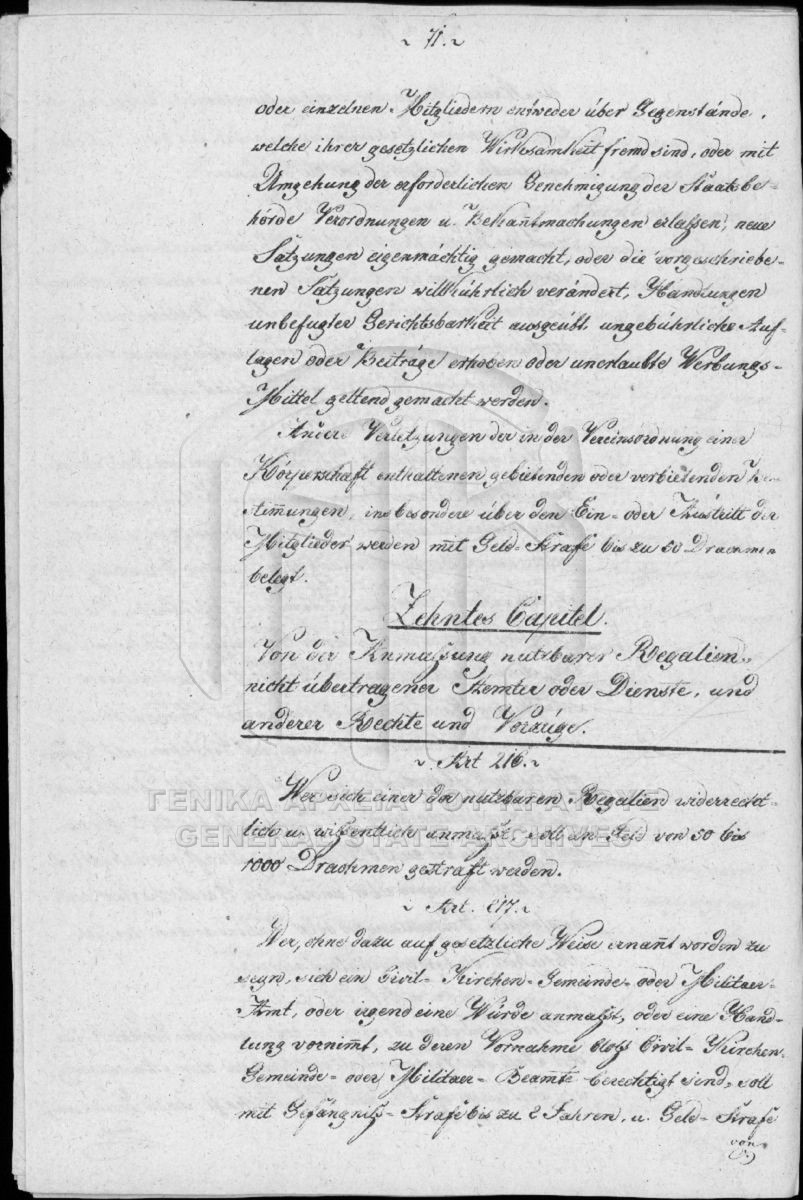 ~ 71. ~
oder einzelnen Mitgliedern entweder über Gegenstände,
welche ihrer gesetzlichen Wirksamkeit fremd sind, oder mit
Umgehung der erforderlichen Genehmigung der Staatsbe-
hörde Verordnungen u. Bekan̄tmachungen erlaßen, neue
Satzungen eigenmächtig gemacht, oder die vorgeschriebe-
nen Satzungen willkührlich verändert, Handlungen
unbefugter Gerichtsbarkeit ausgeübt, ungebührliche Auf-
lagen oder Beiträge erhoben oder unerlaubte Werbungs-
Mittel geltend gemacht werden.
Andere Verletzungen der in der Vereinsordnung einer
Körperschaft enthaltenen gebietenden oder verbietenden Be-
stim̄ungen, insbesondere über den Ein- oder Austritt der
Mitglieder werden mit Geld-Strafe bis zu 50 Drachmen
belegt.
Zehntes Capitel.
Von der Anmaßung nutzbarer Regalien,
nicht übertragener Aemter oder Dienste, und
anderer Rechte und Vorzüge.
~ Art 216. ~
Wer sich einer der nutzbaren Regalien widerrecht-
lich u. wißentlich anmaßt, soll an Geld von 50 bis
1000 Drachmen gestraft werden.
~ Art. 217. ~
Wer, ohne dazu auf gesetzliche Weise ernan̄t worden zu
seyn, sich ein Civil- Kirchen- Gemeinde- oder Militaer-
Amt, oder irgend eine Würde anmaßt, oder eine Hand-
lung vornim̄t, zu deren Vornahme bloß Civil- Kirchen-
Gemeinde- oder Militaer- Beam̄te berechtigt sind, soll
mit Gefängniß-Strafe bis zu 2 Jahren, u. Geld-Strafe
von
ΓΕΝΙΚΑ ΑΡΧΕΙΑ ΤΟΥ ΚΡΑΤΟΥΣ
GENERAL STATE ARCHIVES